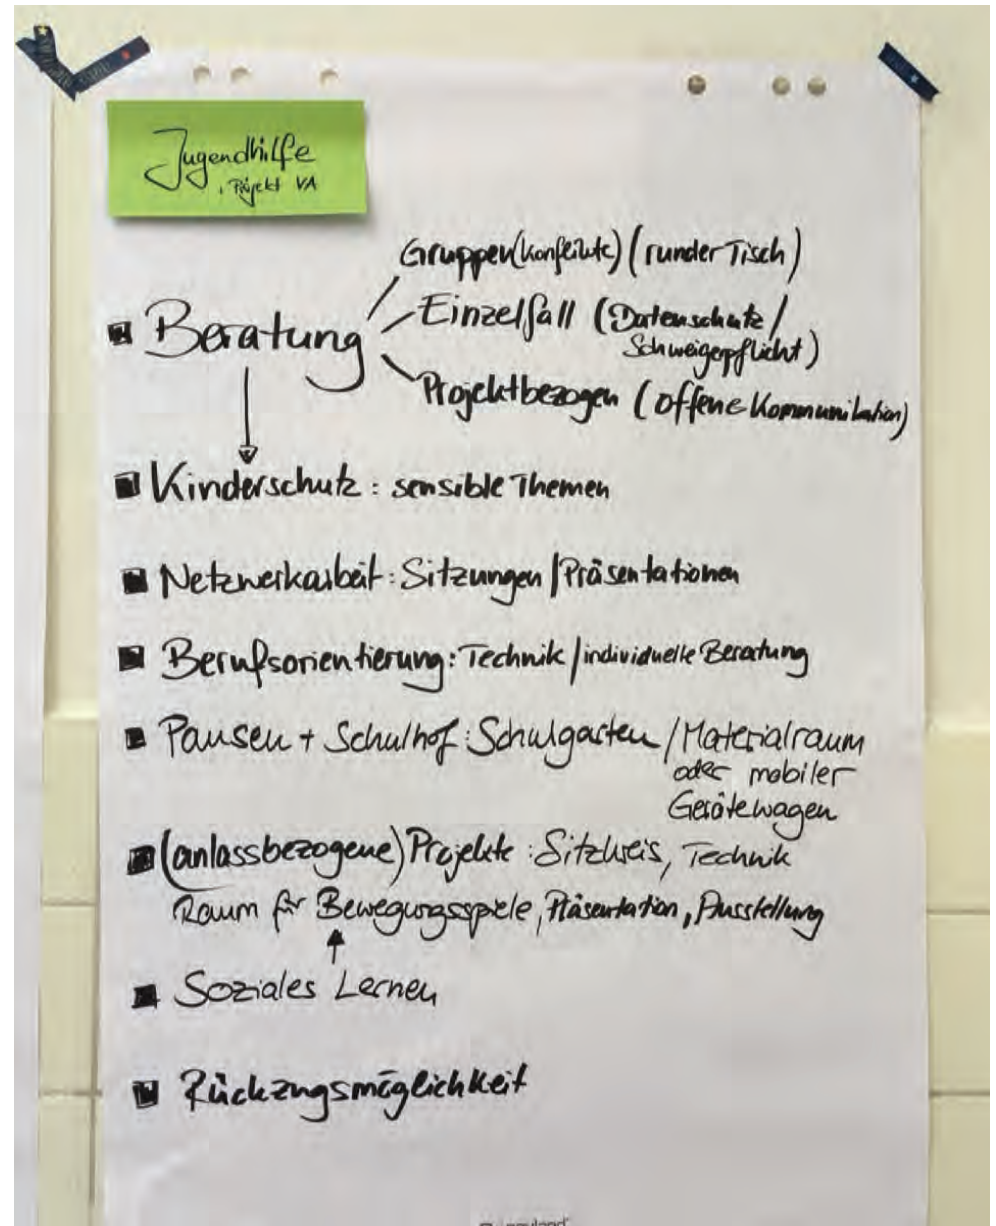 Jugendhilfe
, Projekt VA
Gruppen (Konflikte) (runder Tisch)
■ Beratung
Einzelfall (Datenschutz /
Schweigepflicht)
Projektbezogen (offene Kommunikation)
■ Kinderschutz : sensible Themen
■ Netzwerkarbeit : Sitzungen / Präsentationen
■ Berufsorientierung : Technik / individuelle Beratung
■ Pausen + Schulhof : Schulgarten / Materialraum
oder mobiler
Gerätewagen
■ (anlassbezogene) Projekte : Sitzkreis, Technik
Raum für Bewegungsspiele, Präsentation, Ausstellung
■ Soziales Lernen
■ Rückzugsmöglichkeit